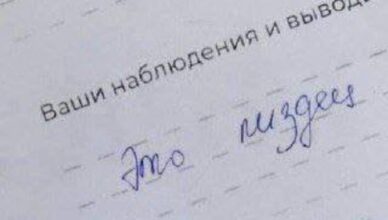 Ваши наблюдения и вывод
Это пиздец